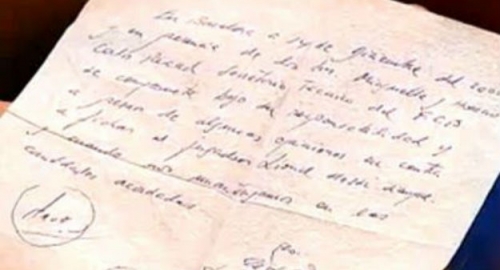 En Barcelona a 14 de Diciembre del
y en presencia de los Srs. Minguella y Horacio
Carles Rexach Secretario Técnico del F.C.B
se compromete bajo su responsabilidad y
a pesar de algunas opiniones en contra
a fichar al jugador Lionel Messi siempre
y cuando nos mantengamos en las
cantidades acordadas